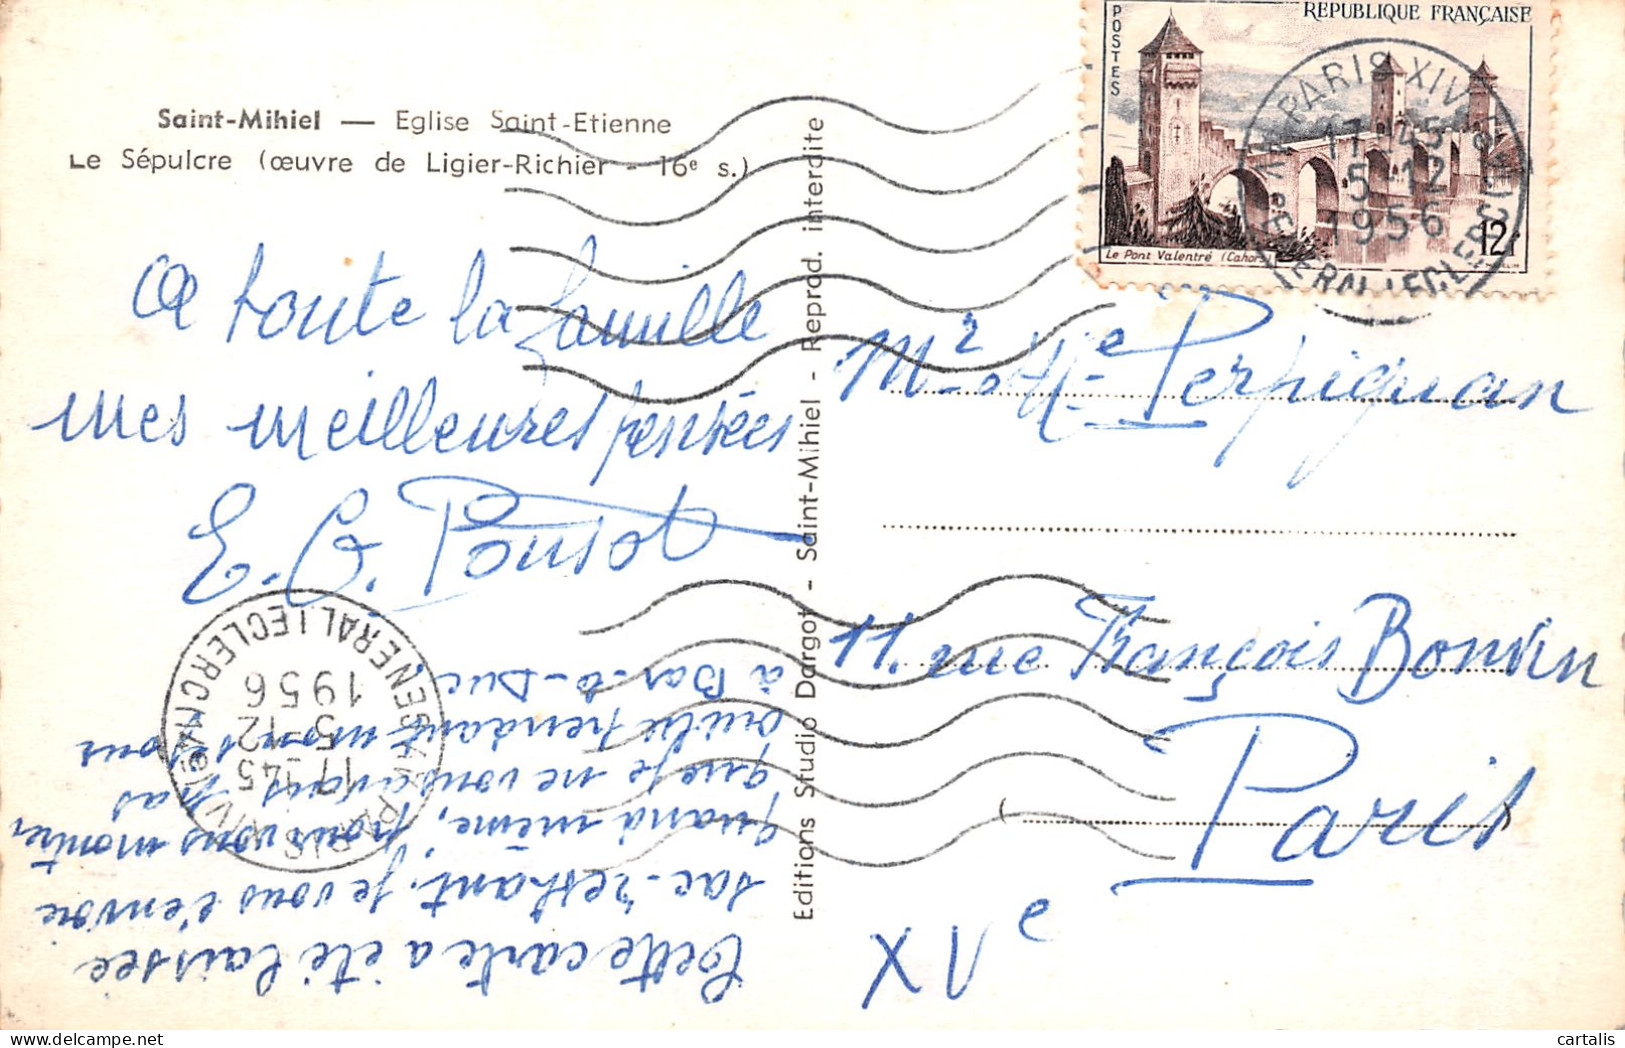 Saint-Mihiel — Eglise Saint-Etienne
Le Sépulcre (œuvre de Ligier-Richier - 16e s.)
A toute la famille
mes meilleures pensées
E. G. Ponsot
Cette carte a été laissée
sac-restant, je vous l'envoie
quand même, pour vous montrer
que je ne vous avais pas
oublié pendant mon séjour
à Bar-le-Duc.
PARIS XIV
17-45
5-12
1956
AV. DU GENERAL LECLERC
Editions Studio Dargot - Saint-Mihiel - Reprod. interdite
POSTES
REPUBLIQUE FRANÇAISE
Le Pont Valentré (Cahors)
12F
PARIS XIV
17-45
5-12
1956
AV. DU GENERAL LECLERC
Mr et Me Perpignan
11. rue François Bonvin
Paris
XVe
cartalis
www.delcampe.net